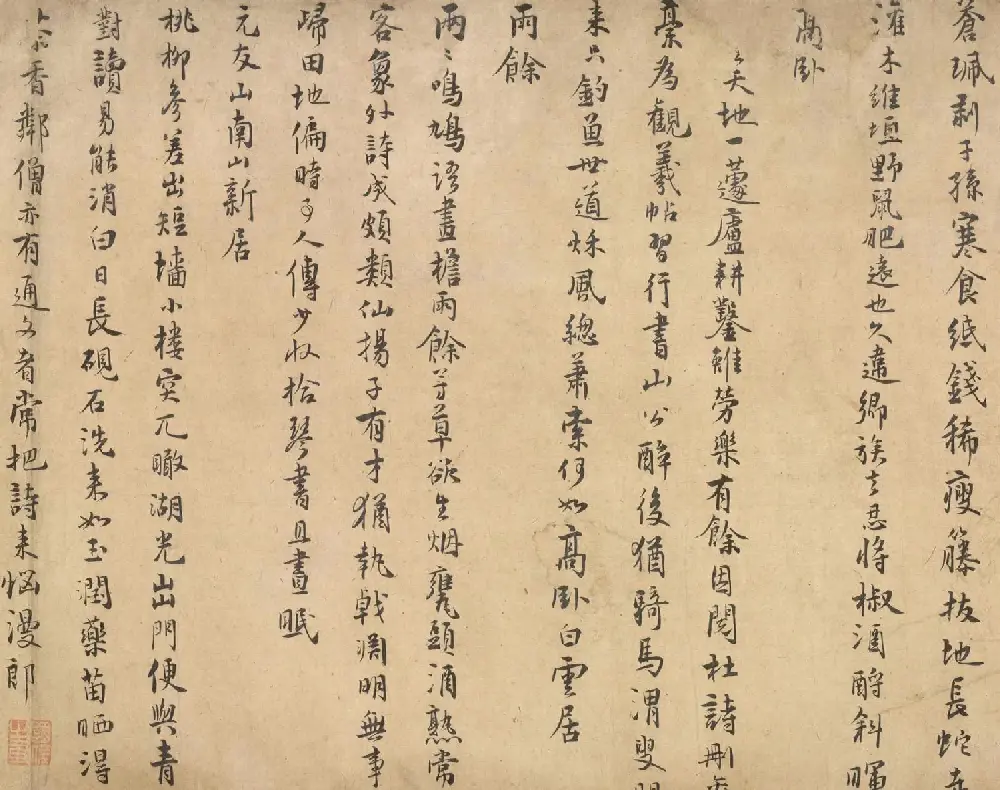 蒼珮剥子孫寒食紙錢稀瘦籐拔地長蛇
灌木維垣野鼠肥遠近久違鄉族
忍將椒酒酹斜暉
高臥
天地一蘧廬耕鑿雖勞樂有餘因閱杜詩刪
藁為觀羲帖習行書山公醉後猶騎馬渭叟
來只釣魚世道秋風總蕭索何如高臥白雲居
雨餘
雨雨鳴鳩語畫檐雨餘芳草欲生烟甕頭酒熟常
客象外詩成頗類仙揚子有才猶執戟淵明無事
歸田地偏時事人傳少收拾琴書且晝眠
元友山南山新居
桃柳參差出短墻小樓突兀瞰湖光出門便與青
對讀易能消白日長硯石洗來如玉潤藥苗晒得
香鄰僧亦有通文者常把詩來惱漫郎